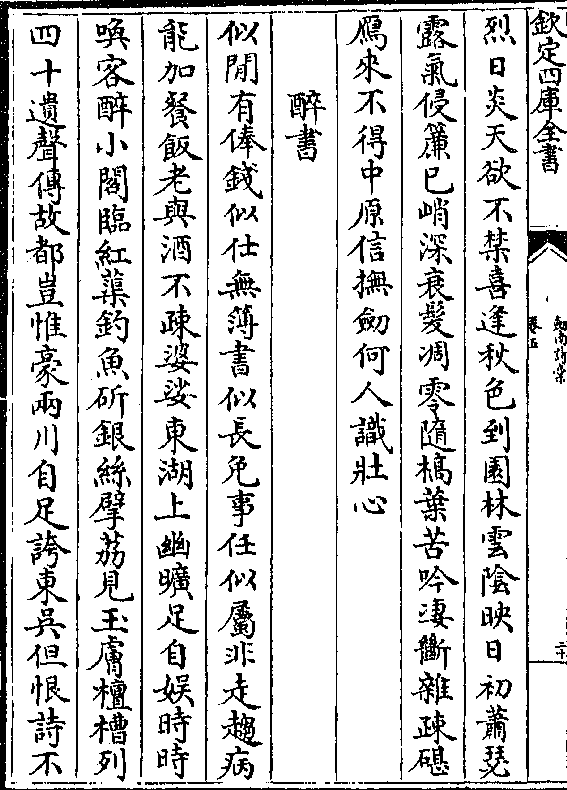 欽定四庫全書
劍南詩槀
卷五
烈日炎天欲不禁喜逢秋色到園林雲陰映日初蕭瑟
露氣侵簾已峭深衰髮凋零隨槁葉苦吟凄斷雜疎碪
鴈來不得中原信撫劒何人識壯心
醉書
似閒有俸錢似仕無簿書似長免事任似屬非走趨病
能加餐飯老與酒不疎婆娑東湖上幽曠足自娛時時
喚客醉小閣臨紅蕖釣魚斫銀絲擘荔見玉膚檀槽列
四十遺聲傳故都豈惟豪兩川自足誇東吳但恨詩不